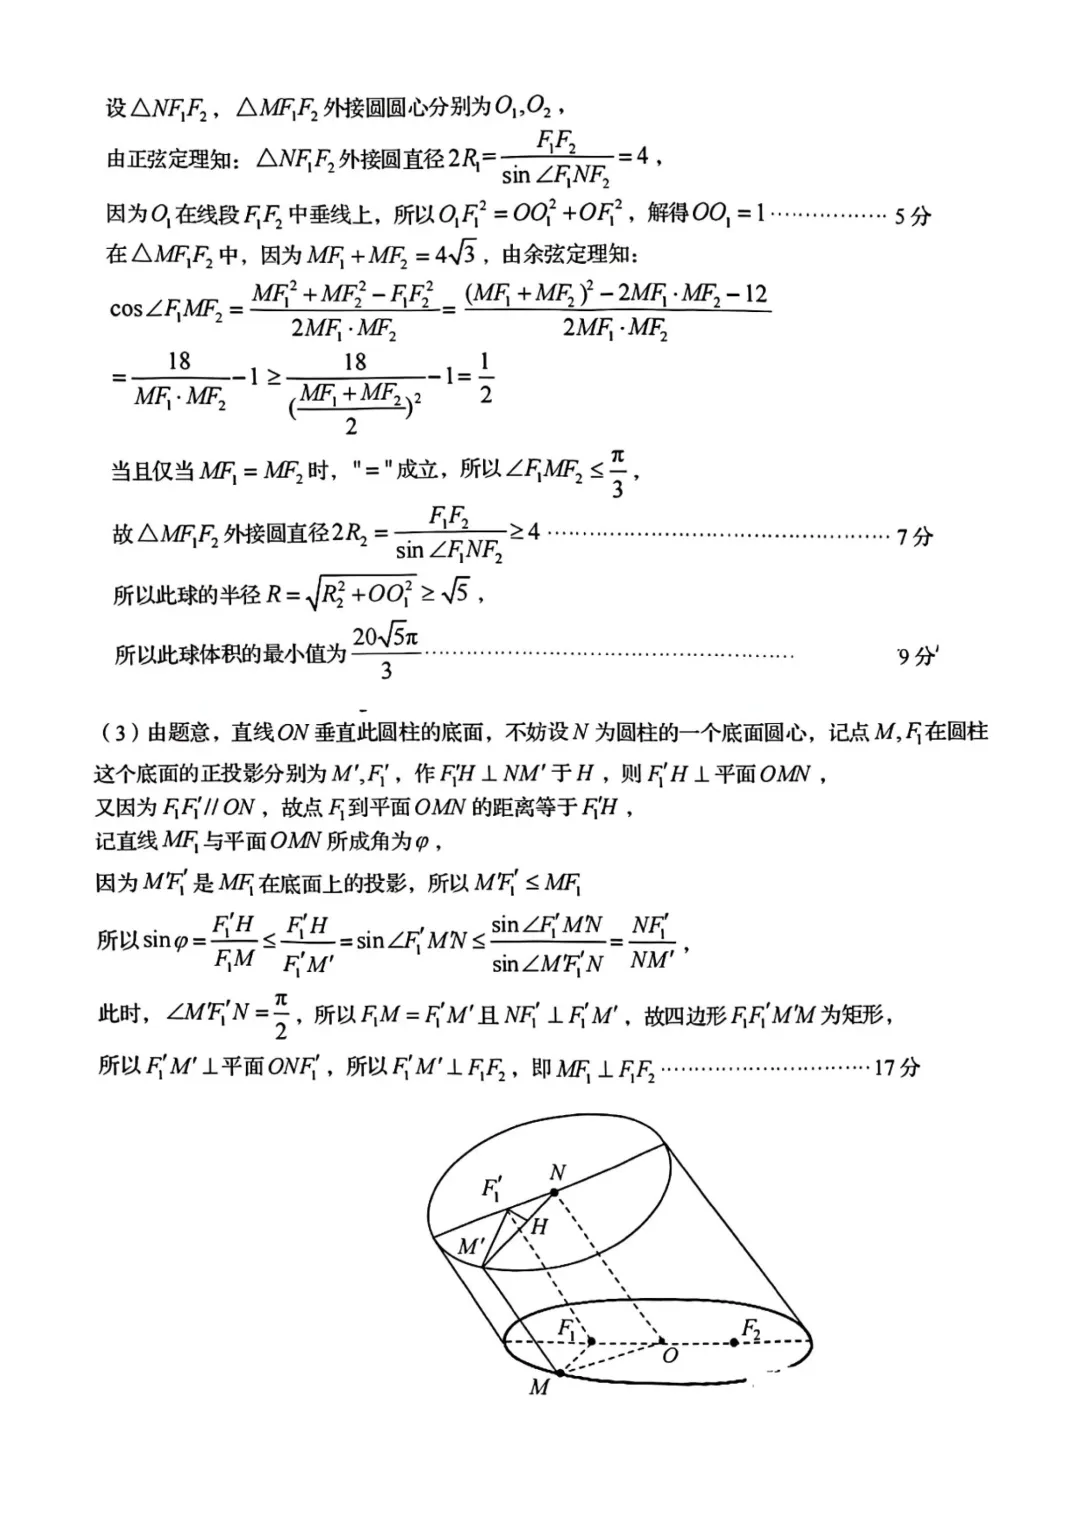 设△NF₁F₂，△MF₁F₂外接圆圆心分别为O₁,O₂，
由正弦定理知：△NF₁F₂外接圆直径2R₁=F₁F₂/sin∠F₁NF₂=4，
因为O₁在线段F₁F₂中垂线上，所以O₁F₁²=OO₁²+OF₁²，解得OO₁=1················5分
在△MF₁F₂中，因为MF₁+MF₂=4√3，由余弦定理知：
cos∠F₁MF₂=(MF₁²+MF₂²-F₁F₂²)/(2MF₁·MF₂)=((MF₁+MF₂)²-2MF₁·MF₂-12)/(2MF₁·MF₂)
=18/(MF₁·MF₂)-1≥18/((MF₁+MF₂)/2)²-1=1/2
当且仅当MF₁=MF₂时，"="成立，所以∠F₁MF₂≤π/3，
故△MF₁F₂外接圆直径2R₂=F₁F₂/sin∠F₁NF₂≥4················7分
所以此球的半径R=√(R₂²+OO₁²)≥√5，
所以此球体积的最小值为20√5π/3················9分
（3）由题意，直线ON垂直此圆柱的底面，不妨设N为圆柱的一个底面圆心，记点M,F₁在圆柱
这个底面的正投影分别为M′,F₁′，作F₁′H⊥NM′于H，则F₁′H⊥平面OMN，
又因为F₁F₁′//ON，故点F₁到平面OMN的距离等于F₁′H，
记直线MF₁与平面OMN所成角为φ，
因为M′F₁′是MF₁在底面上的投影，所以M′F₁′≤MF₁
所以sinφ=F₁′H/F₁M≤F₁′H/F₁′M′=sin∠F₁′M′N≤sin∠F₁′M′N/sin∠M′F₁′N=NF₁′/NM′，
此时，∠M′F₁′N=π/2，所以F₁M=F₁′M′且NF₁′⊥F₁′M′，故四边形F₁F₁′M′M为矩形，
所以F₁′M′⊥平面ONF₁′，所以F₁′M′⊥F₁F₂，即MF₁⊥F₁F₂················17分
N
F₁′
H
M′
F₁
F₂
O
M